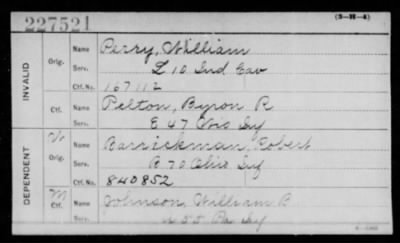 227521
(3-H-4)
INVALID
Orig.
Name Perry, William
Serv. L 10 Ind Cav
Ctf. No. 167112
Ctf.
Name Pelton, Byron R
Serv. E 47 Wis Inf
DEPENDENT
W
Orig.
Name Barrickman, Robert
Serv. B 70 Ohio Inf
Ctf. No. 840852
M
Ctf.
Name Johnson, William B
Serv. 55 Pa Inf